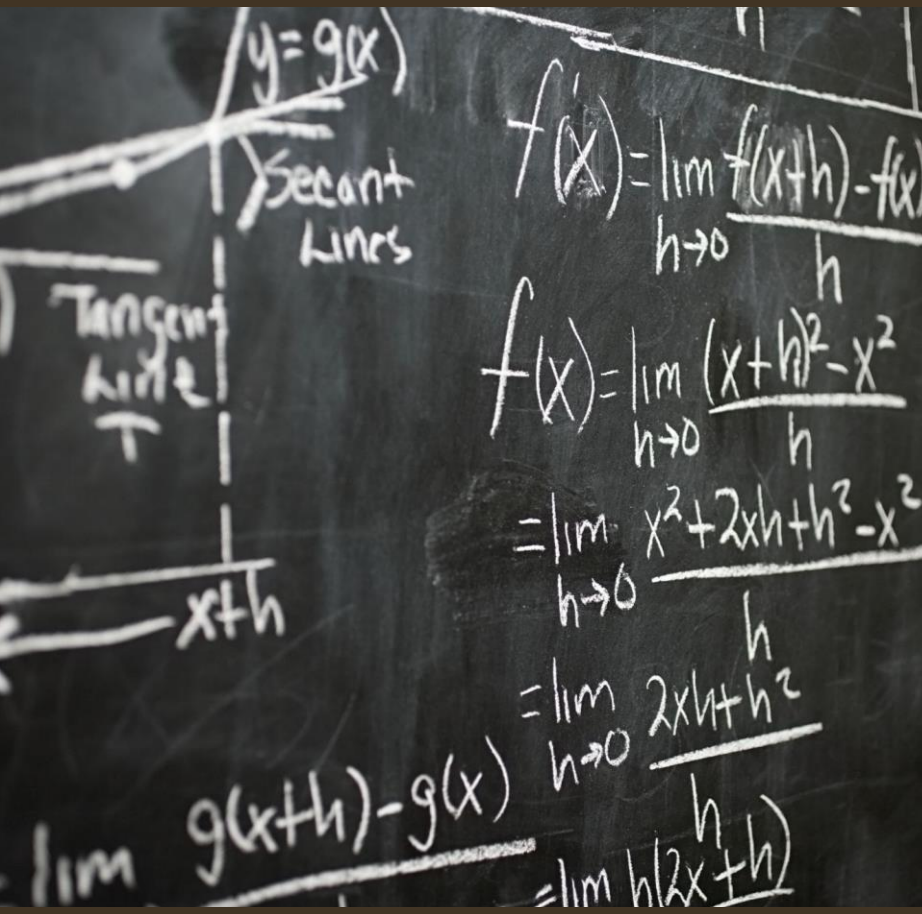 y=g(x)
Secant
Lines
Tangent
Line
T
x+h
lim g(x+h)-g(x)
f'(x)=lim f(x+h)-f(x)
h→0 h
f(x)=lim (x+h)²-x²
h→0 h
=lim x²+2xh+h²-x²
h→0 h
=lim 2xh+h²
h→0 h
=lim h(2x+h)